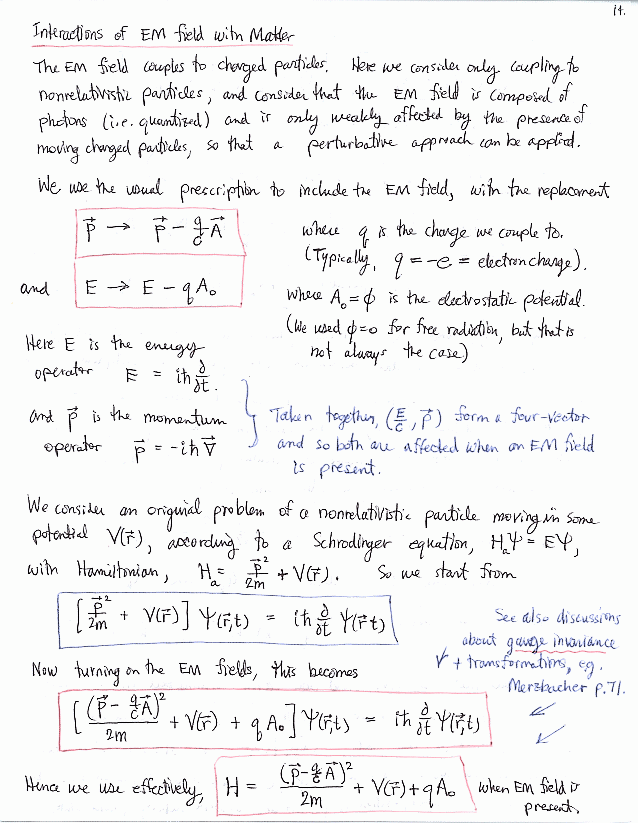 14.
Interactions of EM field with Matter
The EM field couples to charged particles. Here we consider only coupling to
nonrelativistic particles, and consider that the EM field is composed of
photons (i.e. quantized) and is only weakly affected by the presence of
moving charged particles, so that a perturbative approach can be applied.
We use the usual prescription to include the EM field, with the replacement
p⃗ → p⃗ - q/c A⃗
where q is the charge we couple to.
(Typically, q = -e = electron charge).
and E → E - qA₀
where A₀ = ϕ is the electrostatic potential.
(We used ϕ=0 for free radiation, but that is
not always the case)
Here E is the energy
operator E = iħ ∂/∂t.
and p⃗ is the momentum
operator p⃗ = -iħ∇⃗
Taken together, (E/c, p⃗) form a four-vector
and so both are affected when an EM field
is present.
We consider an original problem of a nonrelativistic particle moving in some
potential V(r⃗), according to a Schrodinger equation, HₐΨ = EΨ,
with Hamiltonian, Hₐ = p⃗²/2m + V(r⃗). So we start from
[p⃗²/2m + V(r⃗)] Ψ(r⃗,t) = iħ ∂/∂t Ψ(r⃗,t)
See also discussions
about gauge invariance
+ transformations, eg.
Merzbacher p.71.
Now turning on the EM fields, this becomes
[(p⃗ - q/c A⃗)²/2m + V(r⃗) + qA₀] Ψ(r⃗,t) = iħ ∂/∂t Ψ(r⃗,t)
Hence we use effectively, H = (p⃗ - q/c A⃗)²/2m + V(r⃗) + qA₀ when EM field is
present.